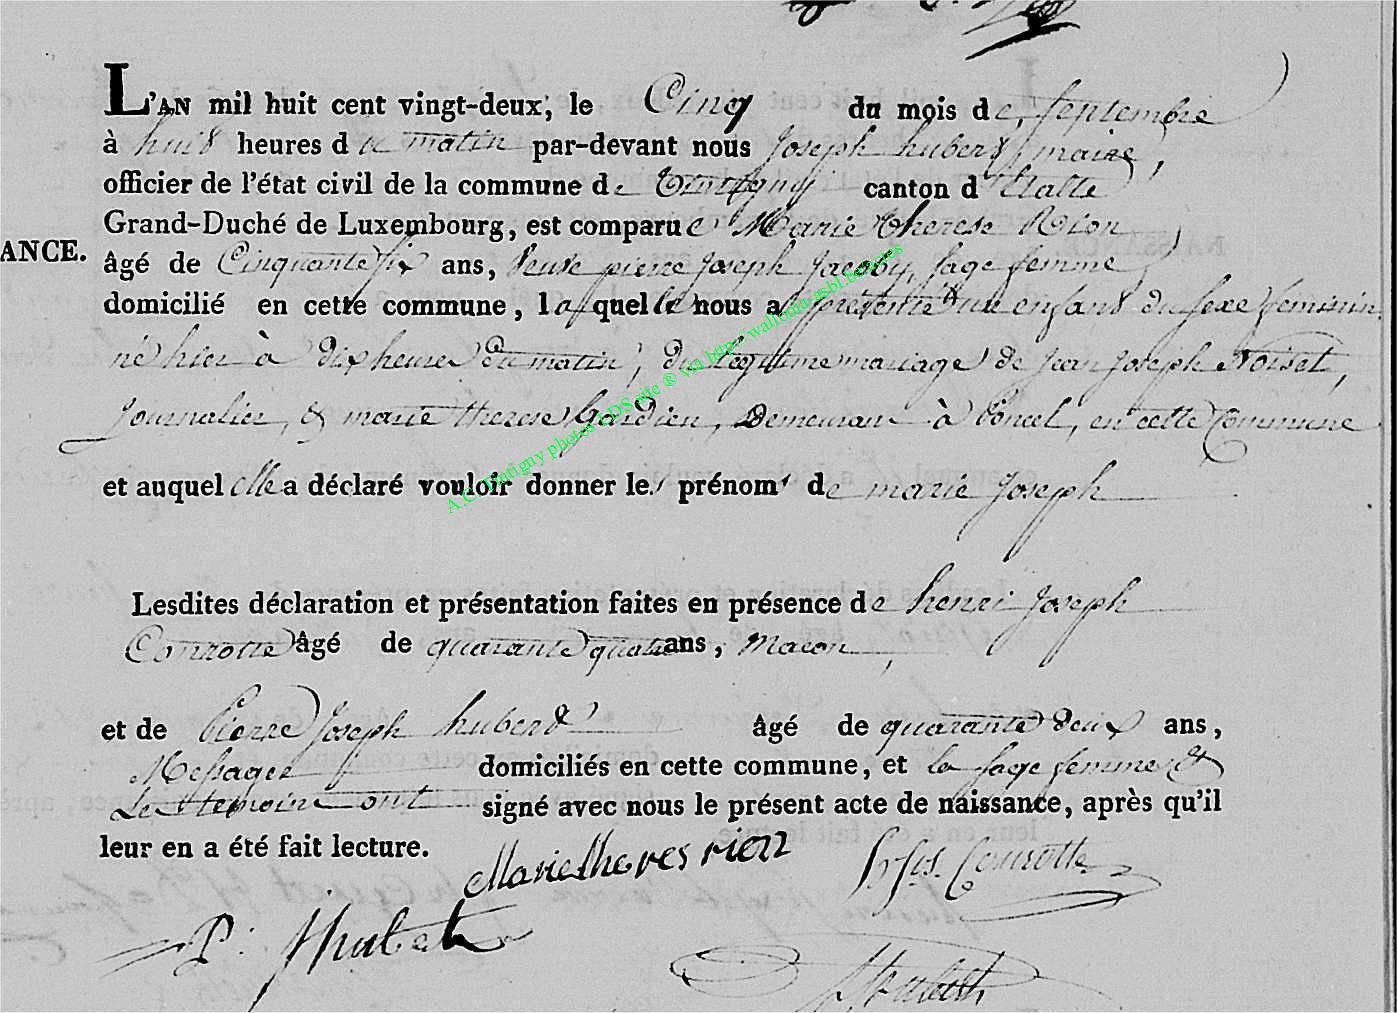 L'AN mil huit cent vingt-deux, le Cinq du mois de Septembre
à huit heures du matin par-devant nous Joseph hubert, maire,
officier de l'état civil de la commune de Tintigny canton d'Etalle
Grand-Duché de Luxembourg, est comparue Marie Therese Rion
ANCE.
âgé de Cinquante six ans, Veuve pierre Joseph Jacoby, sage femme
domicilié en cette commune, laquelle nous a présenté un enfant du sexe feminin
né hier à dix heures du matin, du legitime mariage de jean joseph Noiset,
journalier, & marie therese Gardien, Demeurant à Poncel, en cette Commune
et auquel elle a déclaré vouloir donner les prénoms de marie Joseph
Lesdites déclaration et présentation faites en présence de henri Joseph
Conrotte âgé de quarante quatre ans, Macon,
et de Pierre Joseph hubert âgé de quarante deux ans,
Messager domiciliés en cette commune, et la sage femme et
Les temoins ont signé avec nous le présent acte de naissance, après qu'il
leur en a été fait lecture.
Marie theres rion
Conrotte
P: J hubert
J hubert
A.C. Tintigny photos LDS site ® via http://wallonia-asbl.be/actes